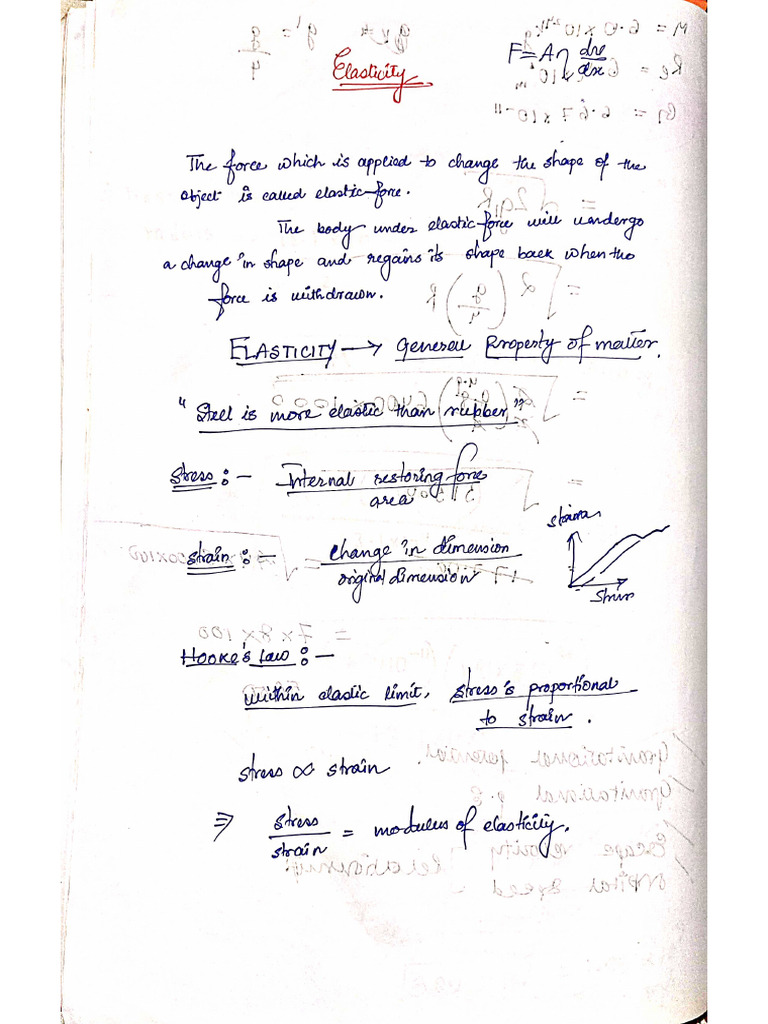 F = Aη dv/dx
Elasticity
The force which is applied to change the shape of the
object is called elastic-force.
The body under elastic-force will undergo
a change in shape and regains its shape back when the
force is withdrawn.
ELASTICITY → General Property of matter.
"Steel is more elastic than rubber"
Stress :- Internal restoring force
area
Strain :- Change in dimension
original dimension
Hooke's Law :-
within elastic limit, stress is proportional
to strain.
stress ∝ strain
⇒ stress
strain = modulus of elasticity.